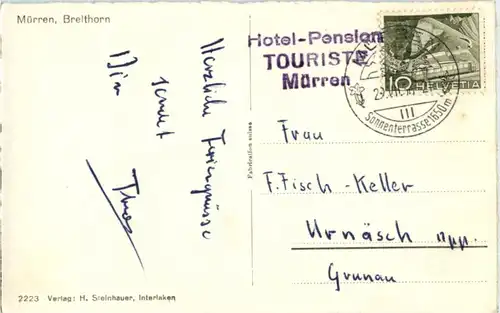 Mürren, Breithorn
Herzliche Feriengrüsse
sendet
Dir
Hotel-Pension
TOURISTA
Mürren
10 HELVETIA
III
Sonnenterrasse 1650 m
Fabrication suisse
Frau
F. Fisch-Keller
Urnäsch App.
Grunau
2223 Verlag: H. Steinhauer, Interlaken